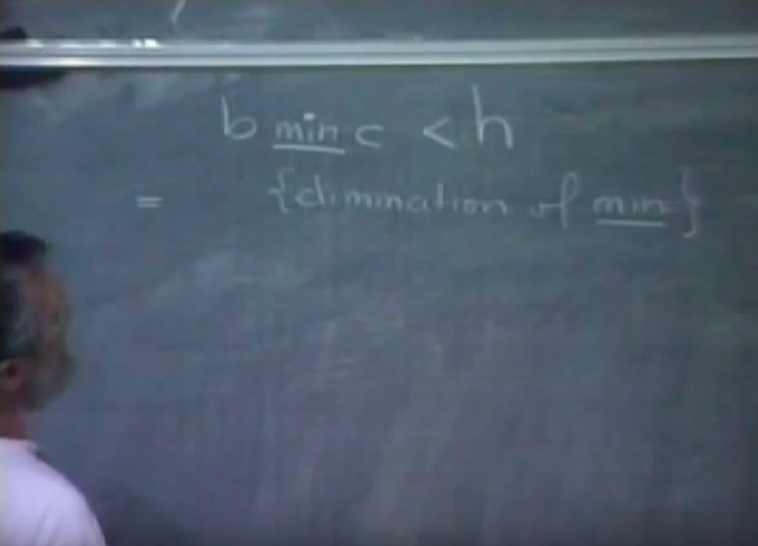 b min c < h
= {elimination of min}